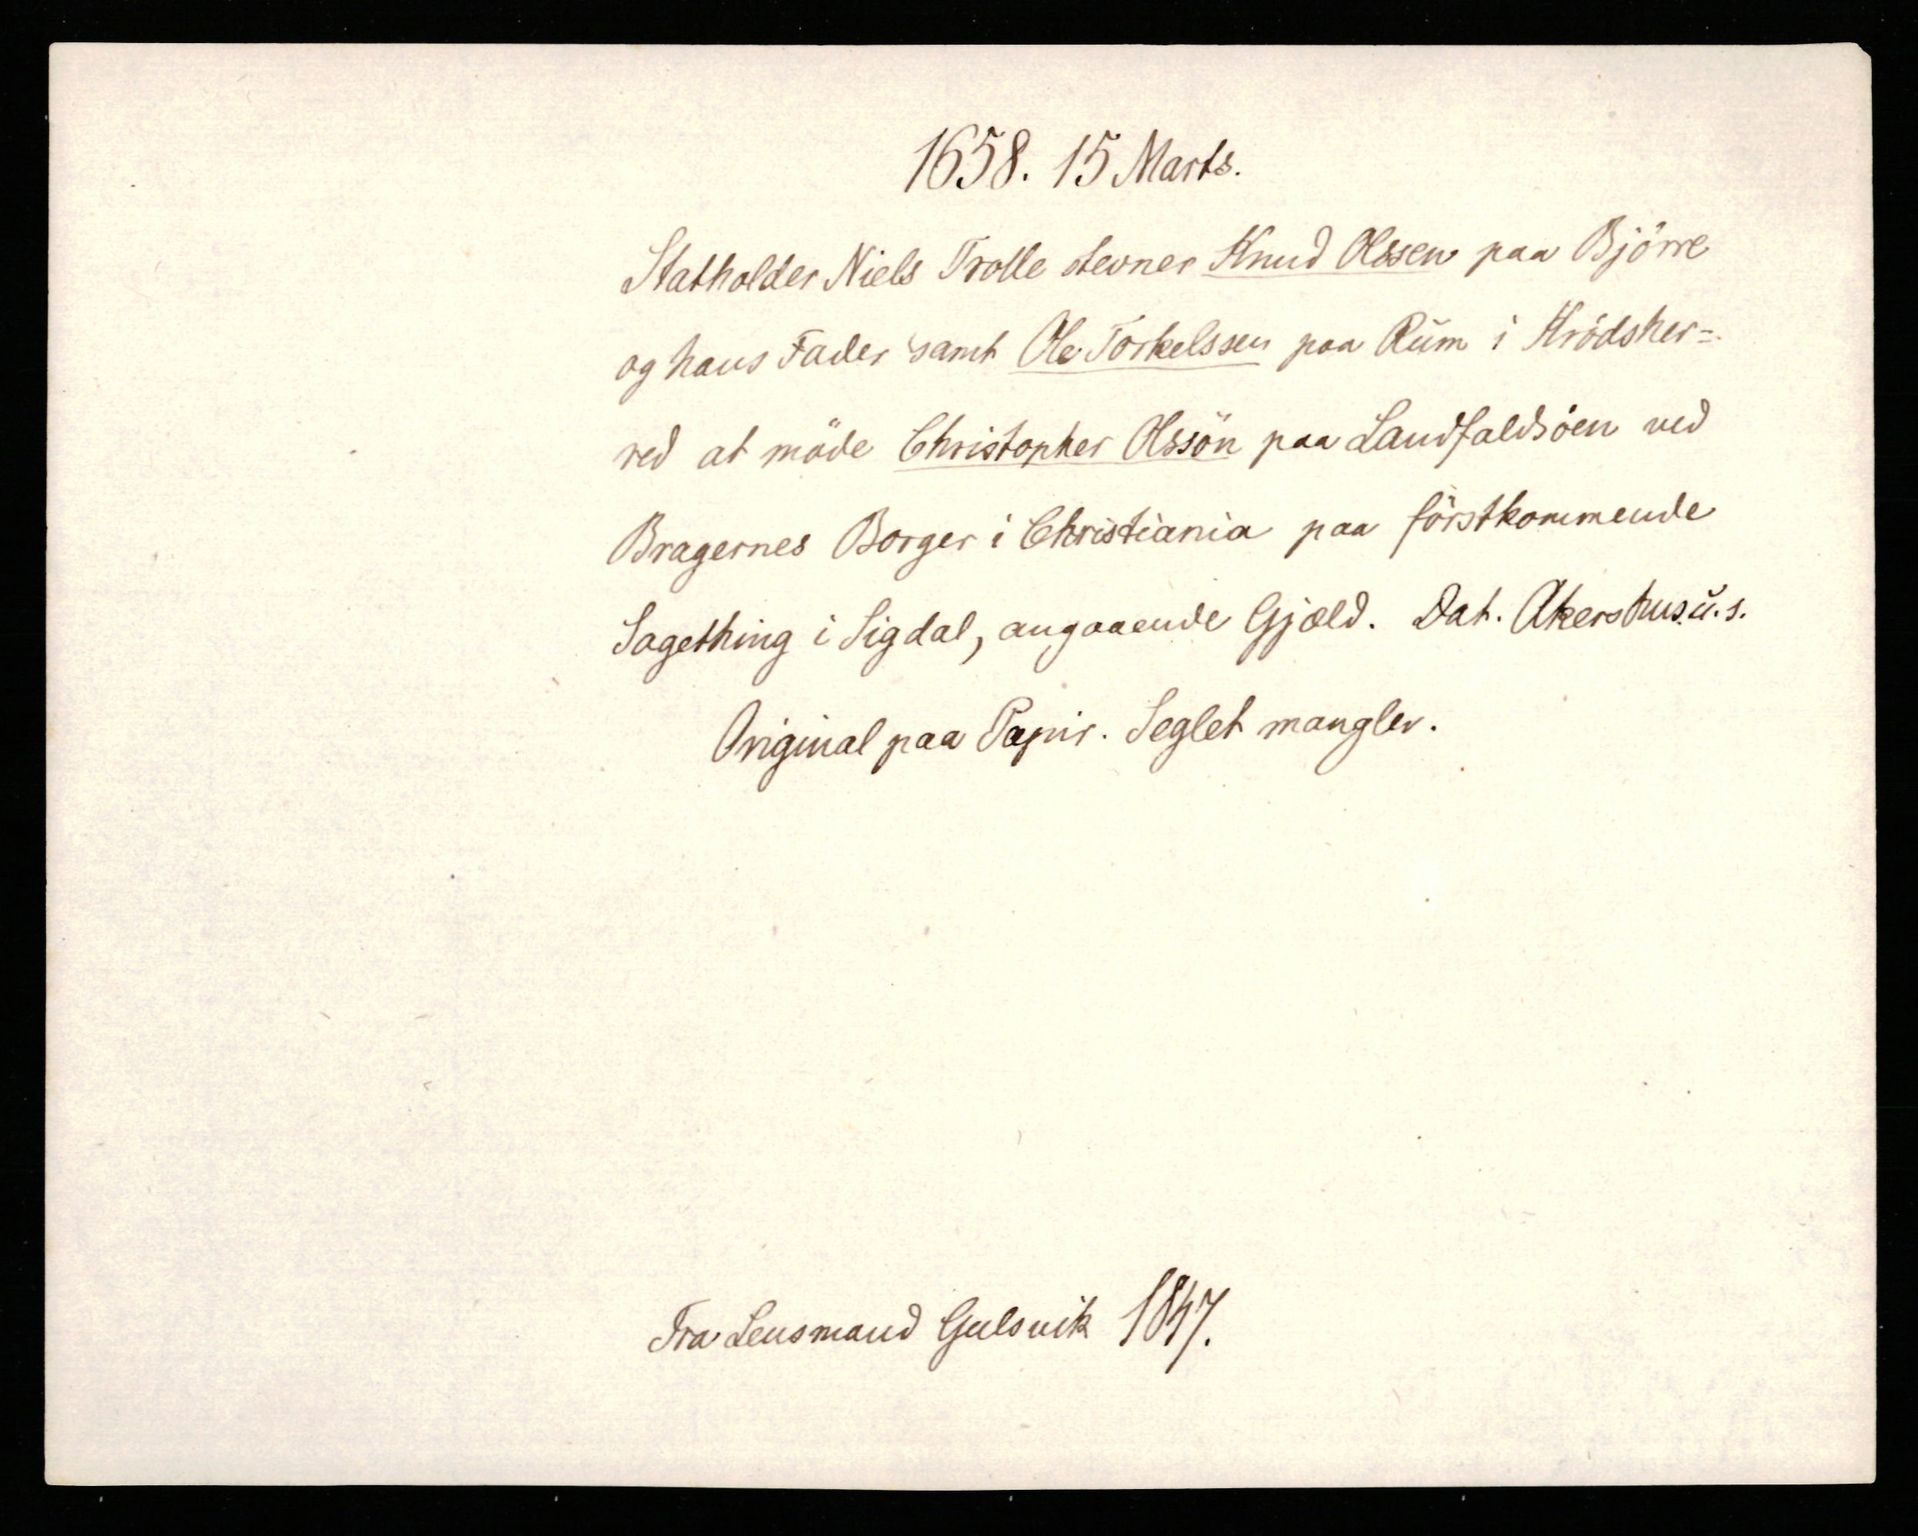 1658. 15 Marts.
Statholder Niels Trolle stevner Knud Olssen paa Björre
og hans Fader samt Ole Torkelssen paa Rŭm i Krödsher=
red at möde Christopher Olssön paa Landfaldsöen ved
Bragernes Borger i Christiania paa förstkommende
Sagething i Sigdal, angaaende Gjæld. Dat. Akershus ŭ. s.
Original paa Papir. Seglet mangler.
Fra Lensmand Gulsvik 1847.